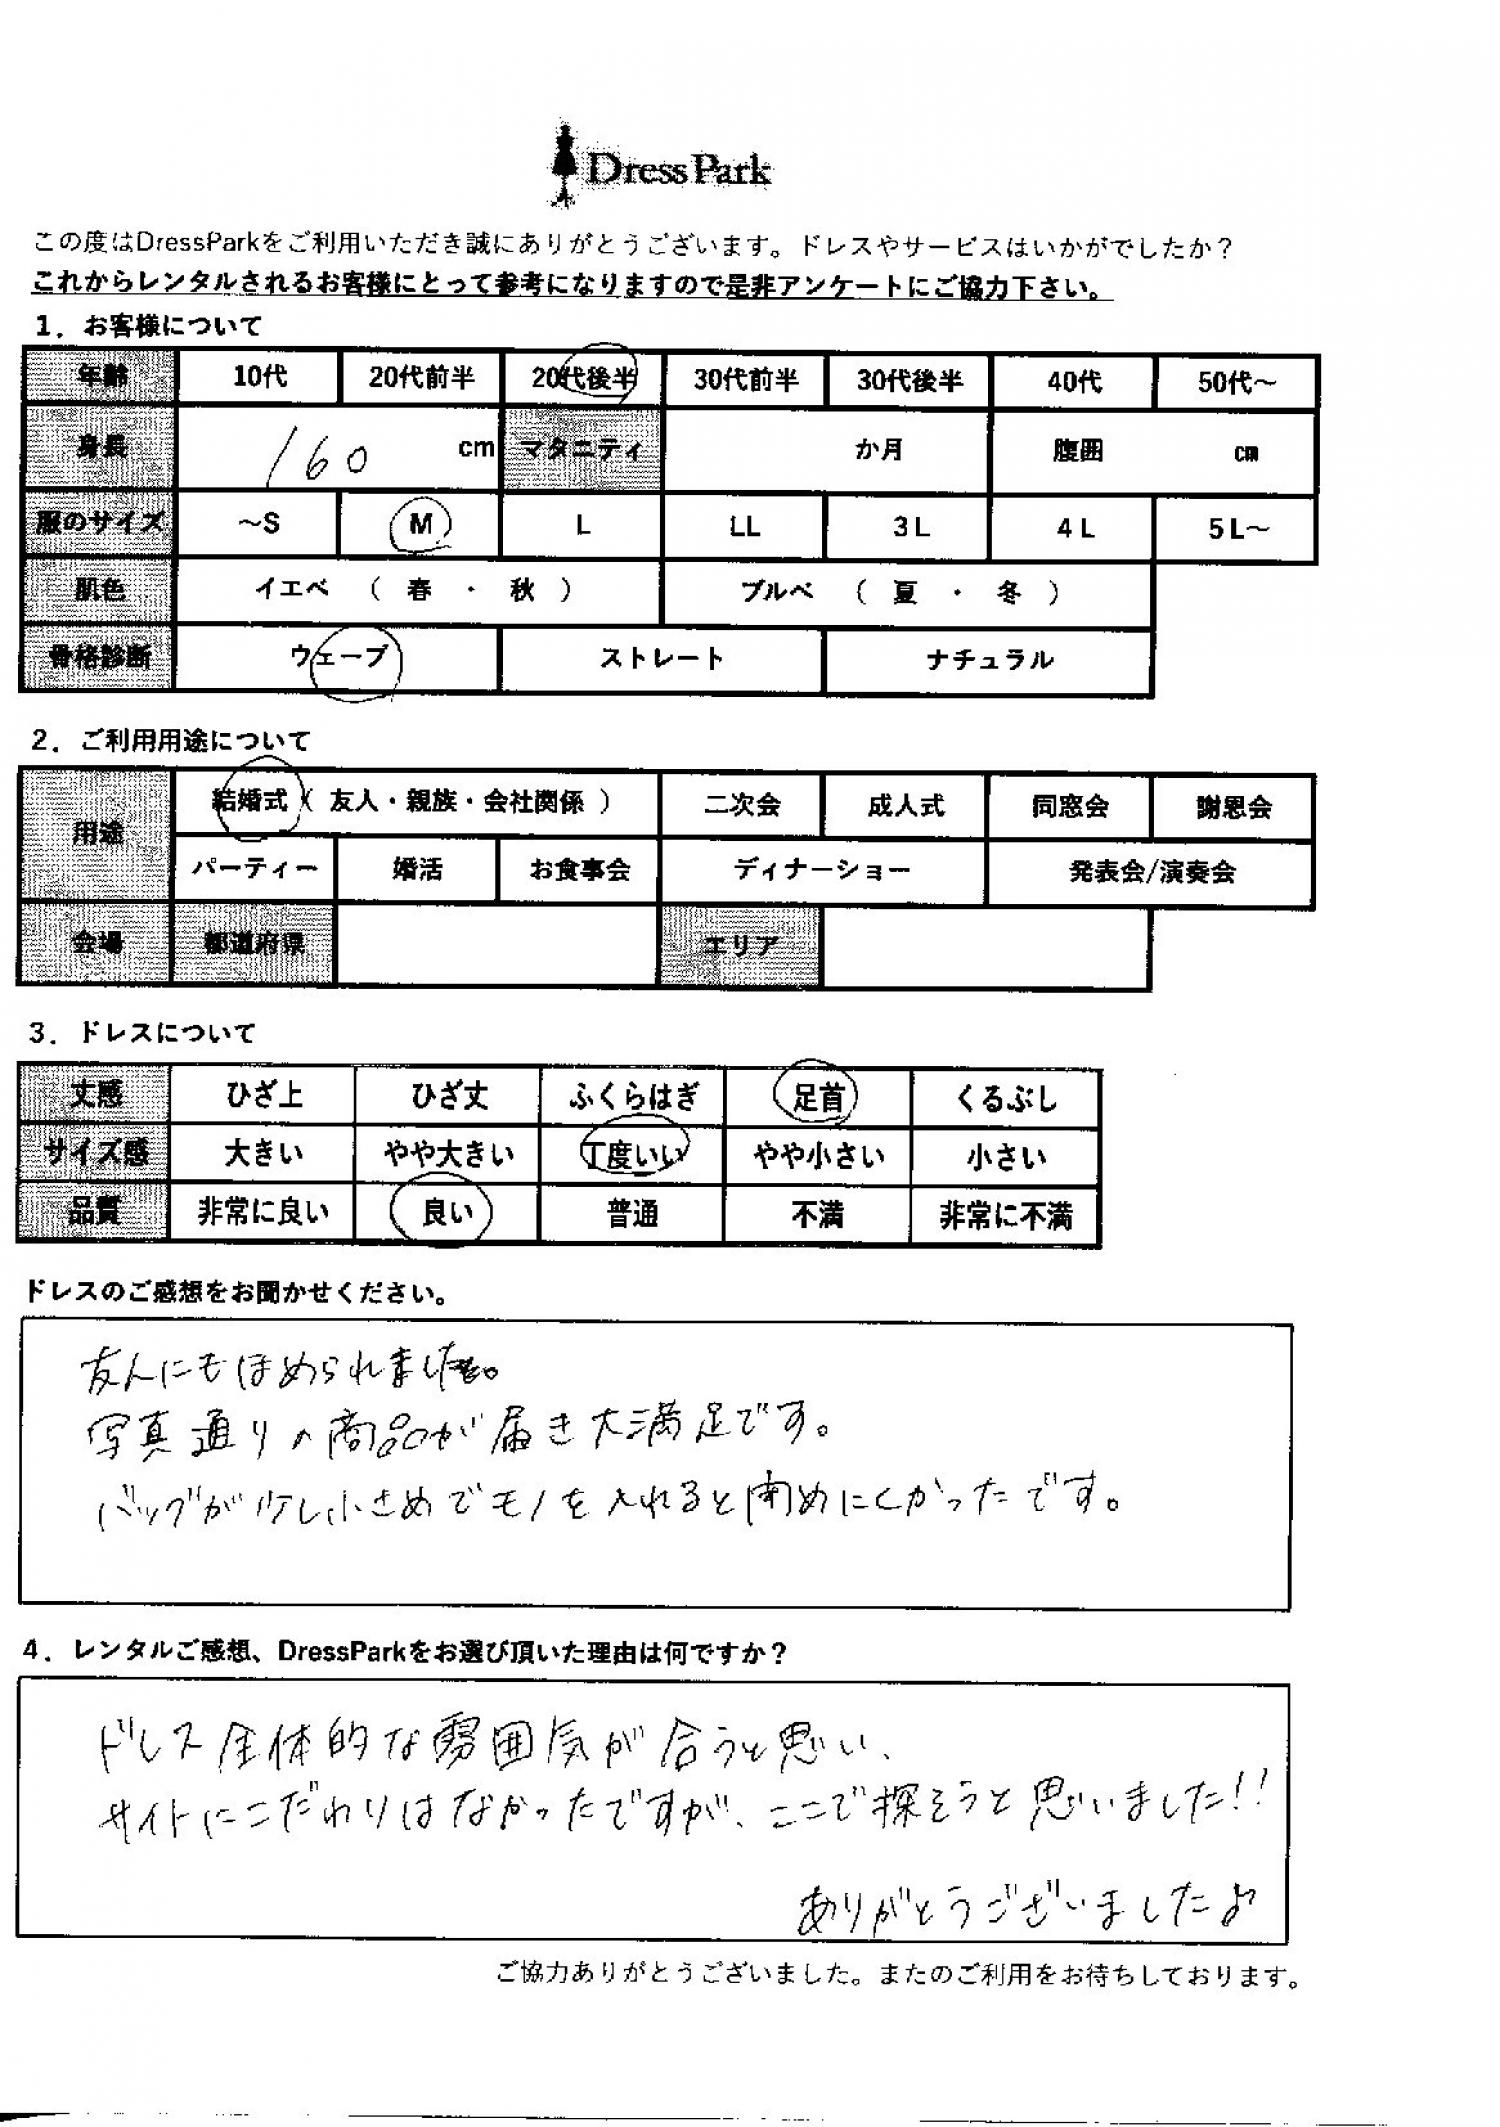 DressPark
この度はDressParkをご利用いただき誠にありがとうございます。ドレスやサービスはいかがでしたか？
これからレンタルされるお客様にとって参考になりますので是非アンケートにご協力下さい。
1．お客様について
年齢 10代 20代前半 20代後半 30代前半 30代後半 40代 50代～
身長 160 cm マタニティ か月 腹囲 cm
服のサイズ ～S M L LL 3L 4L 5L～
肌色 イエベ （ 春 ・ 秋 ） ブルベ （ 夏 ・ 冬 ）
骨格診断 ウェーブ ストレート ナチュラル
2．ご利用用途について
用途 結婚式（ 友人・親族・会社関係 ） 二次会 成人式 同窓会 謝恩会
パーティー 婚活 お食事会 ディナーショー 発表会/演奏会
会場 都道府県 エリア
3．ドレスについて
丈感 ひざ上 ひざ丈 ふくらはぎ 足首 くるぶし
サイズ感 大きい やや大きい 丁度いい やや小さい 小さい
品質 非常に良い 良い 普通 不満 非常に不満
ドレスのご感想をお聞かせください。
友人にもほめられました。
写真通りの商品が届き大満足です。
バッグが少し小さめでモノを入れると閉めにくかったです。
4．レンタルご感想、DressParkをお選び頂いた理由は何ですか？
ドレス全体的な雰囲気が合うと思い、
サイトにこだわりはなかったですが、ここで探そうと思いました!!
ありがとうございました♪
ご協力ありがとうございました。またのご利用をお待ちしております。